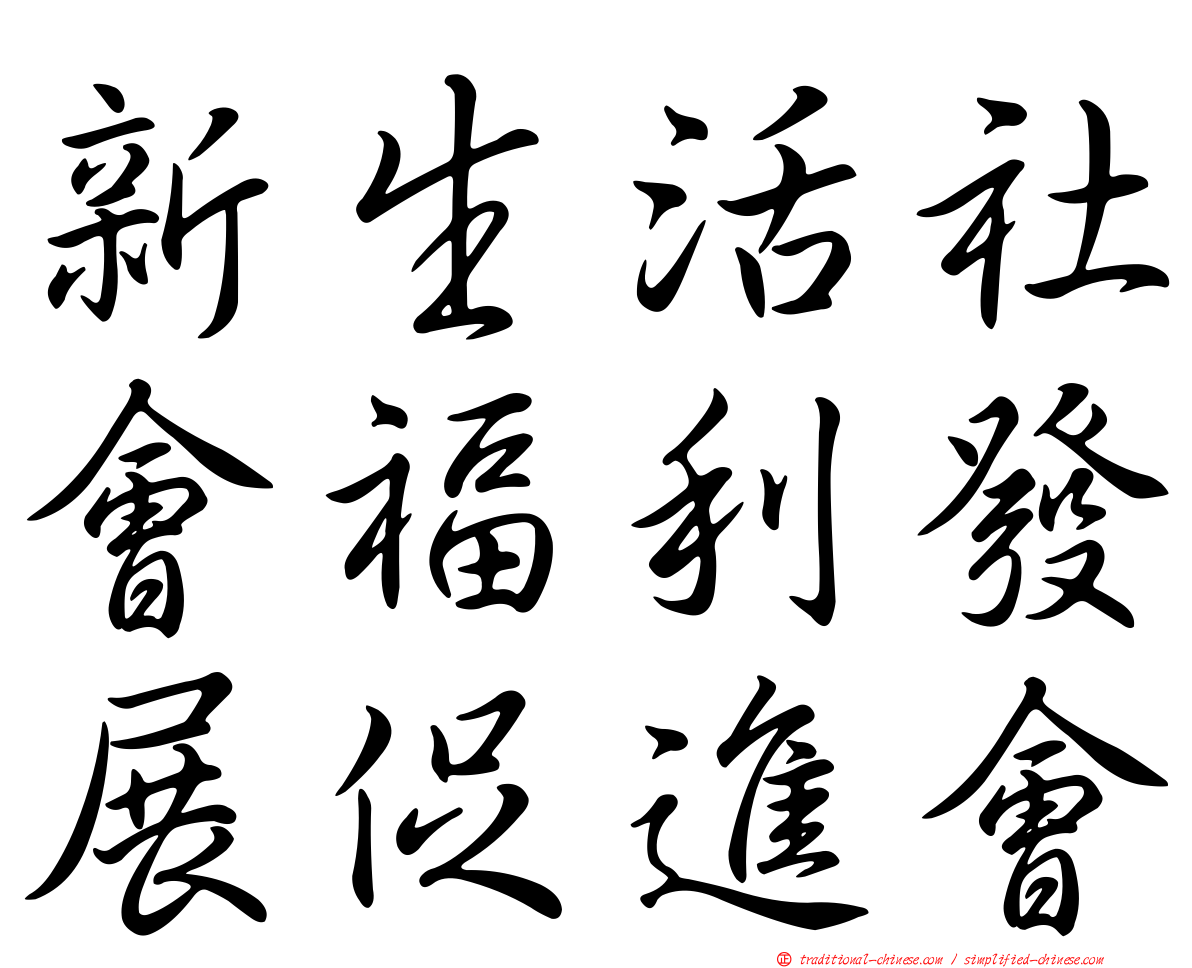 新生活社
會福利發
展促進會
正 traditional-chinese.com / simplified-chinese.com